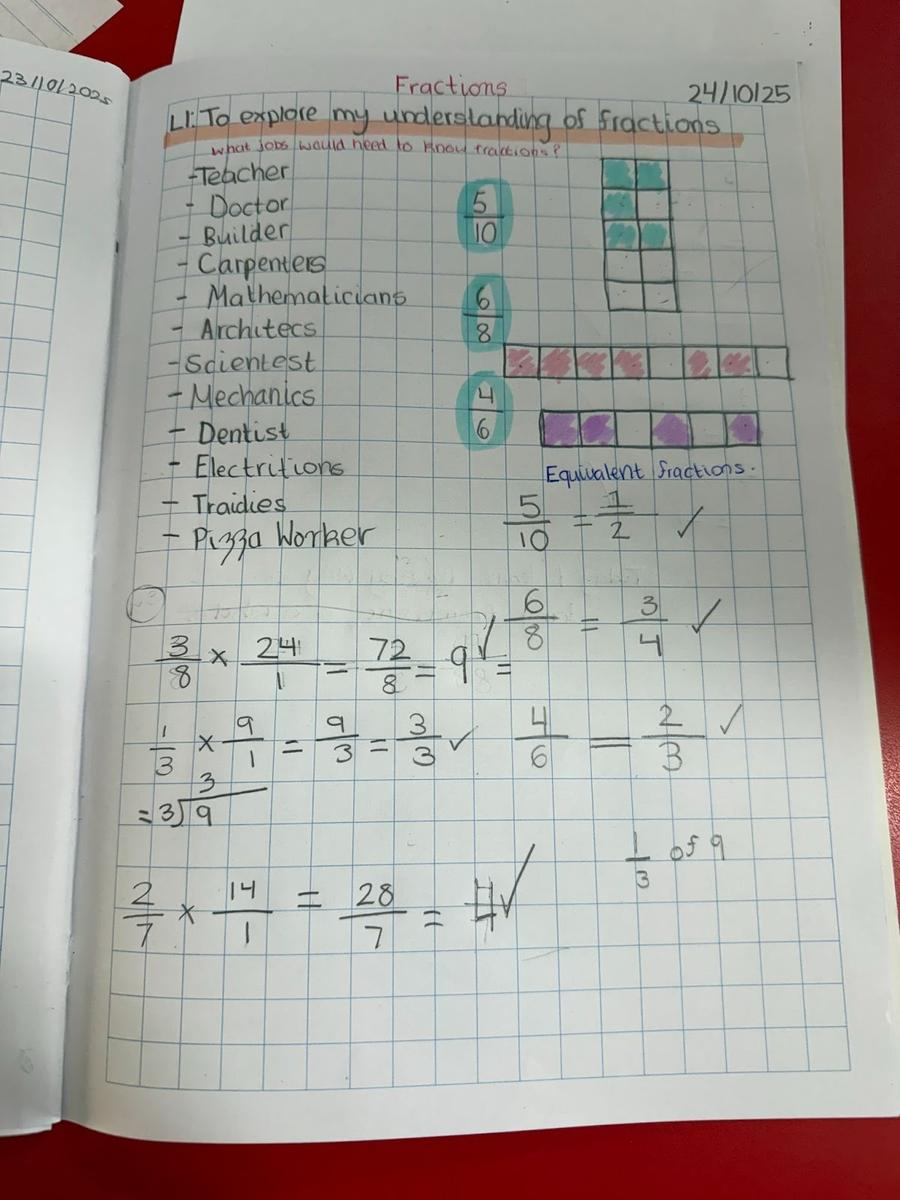 23/10/2025
Fractions
24/10/25
LI: To explore my understanding of fractions
What jobs would need to know fractions?
-Teacher
- Doctor
- Builder
- Carpenters
- Mathematicians
- Architecs
-Scientest
- Mechanics
- Dentist
- Electritions
- Traidies
- Pizza Worker
5/10
6/8
4/6
Equivalent fractions.
5/10 = 1/2 ✓
6/8 = 3/4 ✓
4/6 = 2/3 ✓
3/8 × 24/1 = 72/8 = 9 ✓ =
1/3 × 9/1 = 9/3 = 3/3 ✓
3
= 3)9
1/3 of 9
2/7 × 14/1 = 28/7 = ✓